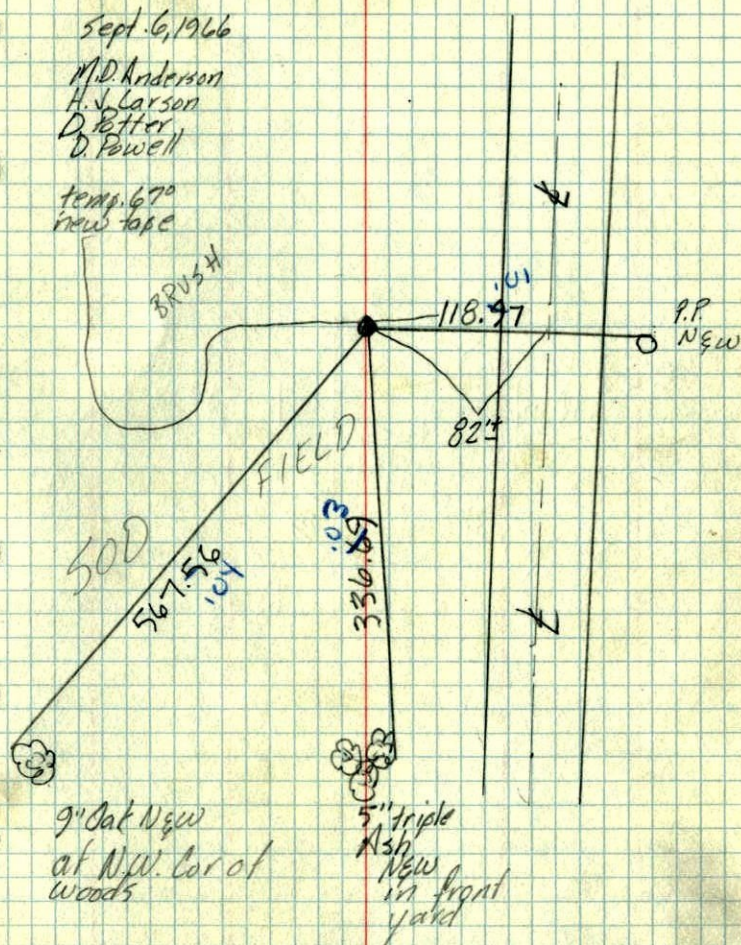 Sept. 6, 1966
M.D. Anderson
H.J. Carson
D. Potter
D. Powell
temp. 67°
new tape
BRUSH
.01
118.97
P.P.
N&W
82'±
FIELD
SOD
567.56
.04
.03
336.69
9" Oak N&W
at N.W. Cor of
woods
5" triple
Ash
N&W
in front
yard